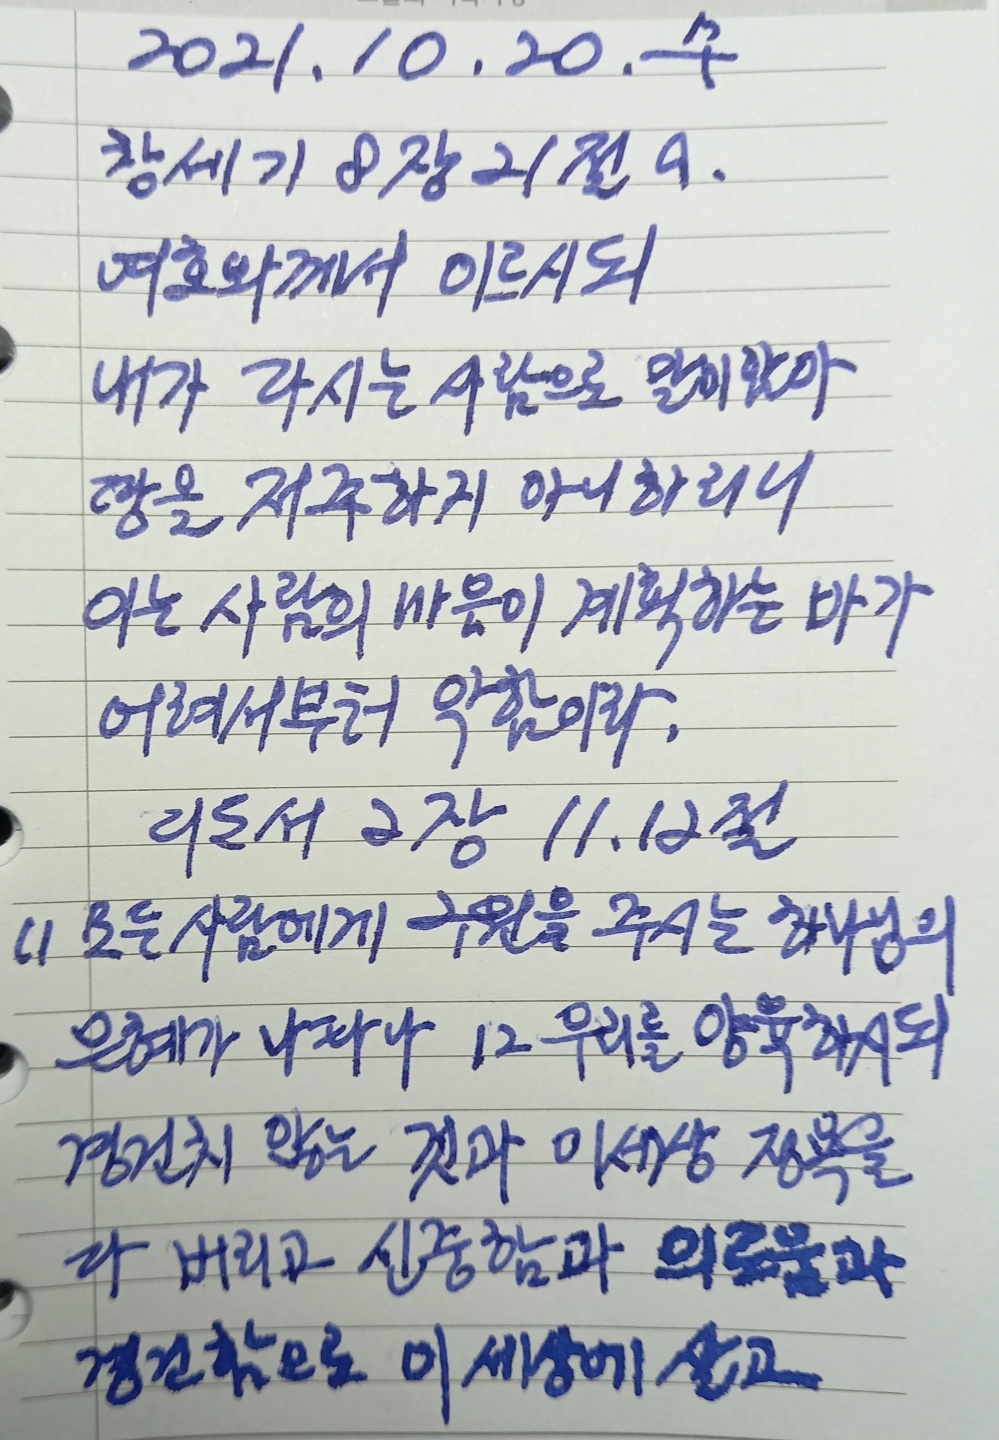 2021.10.20.수
창세기 8장 21절 a.
여호와께서 이르시되
내가 다시는 사람으로 말미암아
땅을 저주하지 아니하리니
이는 사람의 마음이 계획하는 바가
어려서부터 악함이라.
디도서 2장 11.12절
11 모든 사람에게 구원을 주시는 하나님의
은혜가 나타나 12 우리를 양육하시되
경건치 않는 것과 이세상 정욕을
다 버리고 신중함과 의로움과
경건함으로 이 세상에 살고